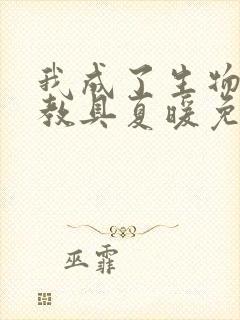 我成了生物
教具夏暖免
巫霏